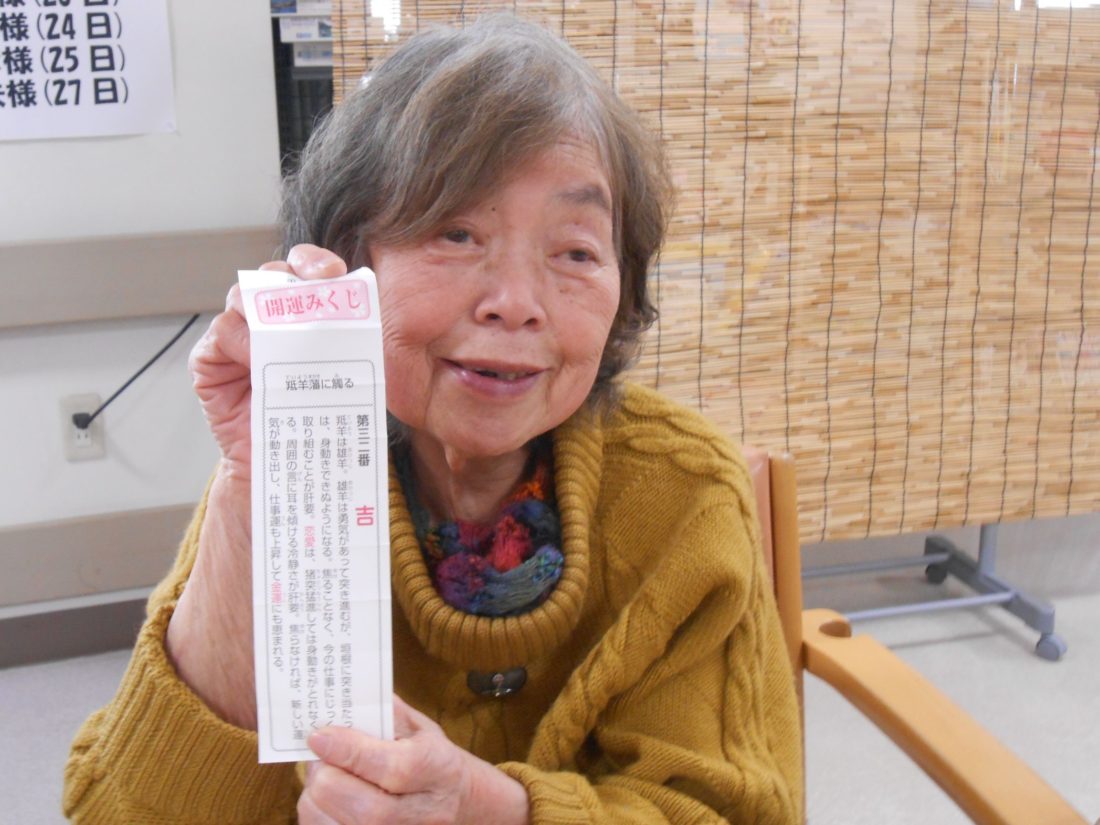 様(26日)
様(24日)
様(25日)
夫様(27日)
開運みくじ
羝羊藩に觸る
第三二番 吉
羝羊は雄羊。雄羊は勇気があって突き進むが、垣根に突き当たっ
は、身動きできぬようになる。焦ることなく、今の仕事にじっく
取り組むことが肝要。恋愛は、猪突猛進しては身動きがとれなく
る。周囲の言に耳を傾ける冷静さが肝要。焦らなければ、新しい運
気が動き出し、仕事運も上昇して金運にも恵まれる。